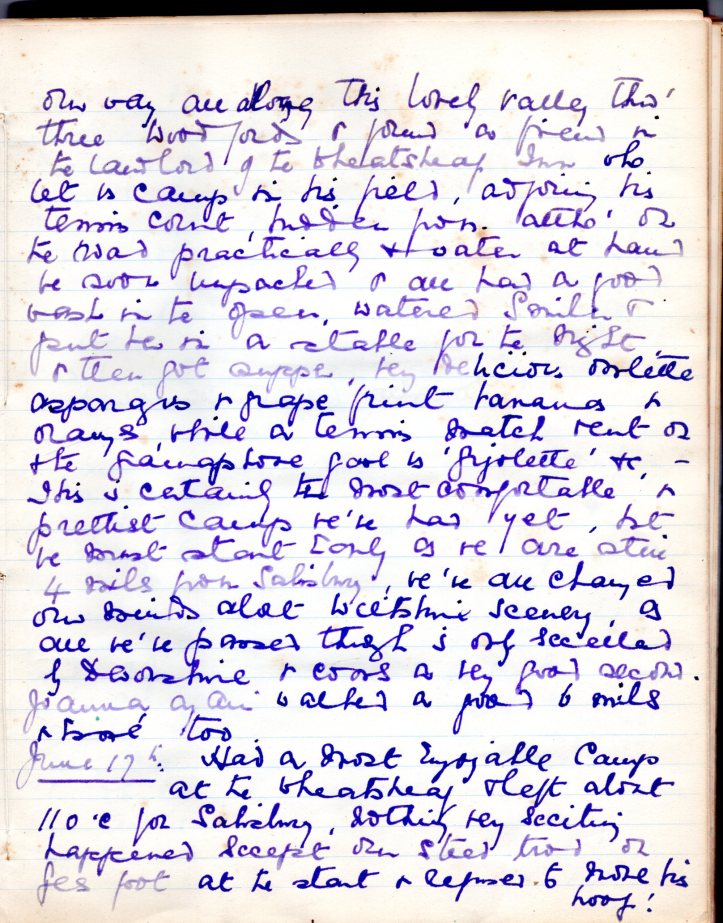 our way all along this lovely valley thro'
three Woodfords & found a friend in
the landlord of the Wheatsheaf Inn who
let us camp in his field, adjoining his
tennis court, hidden from. altho' on
the road practically & water at hand
we soon unpacked & all had a good
wash in the open, watered &
put her in a stable for the Night,
& then got supper, very delicious omlette
aspargus & grape fruit bananas &
orangs, while a tennis match went on
& the gramaphone gave us &c, -
This is certainly the most comfortable &
prettist camp we've had yet, but
we must start Early as we are still
4 mils from Salisbury, we've all changed
our minds about Wiltshire scenery, as
all we've passed through is only Excelled
by Devonshire & coms a very good second.
Joanna again walked a good 6 mils
& too
June 17th. Had a most Enjoyable Camp
at the Wheatsheaf & left about
11 o'c for Salisbury, Nothing very Exciting
happened Except our steed trod on
Jes foot at the start & refused to move his
hoof!